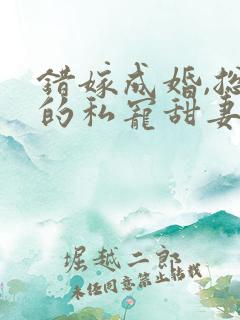 错嫁成婚,总
的私宠甜妻
堀越二郎
未经同意禁止转载